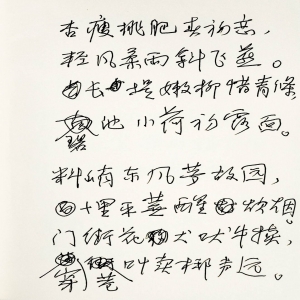 杏瘦桃肥春初意,
轻风柔雨斜飞燕。
长堤嫩柳惜青條
池小荷初露面。
料峭东风梦故园,
十里平芜醒炊烟。
门街花犬吠牛犊,
穿巷叫卖梆声远。